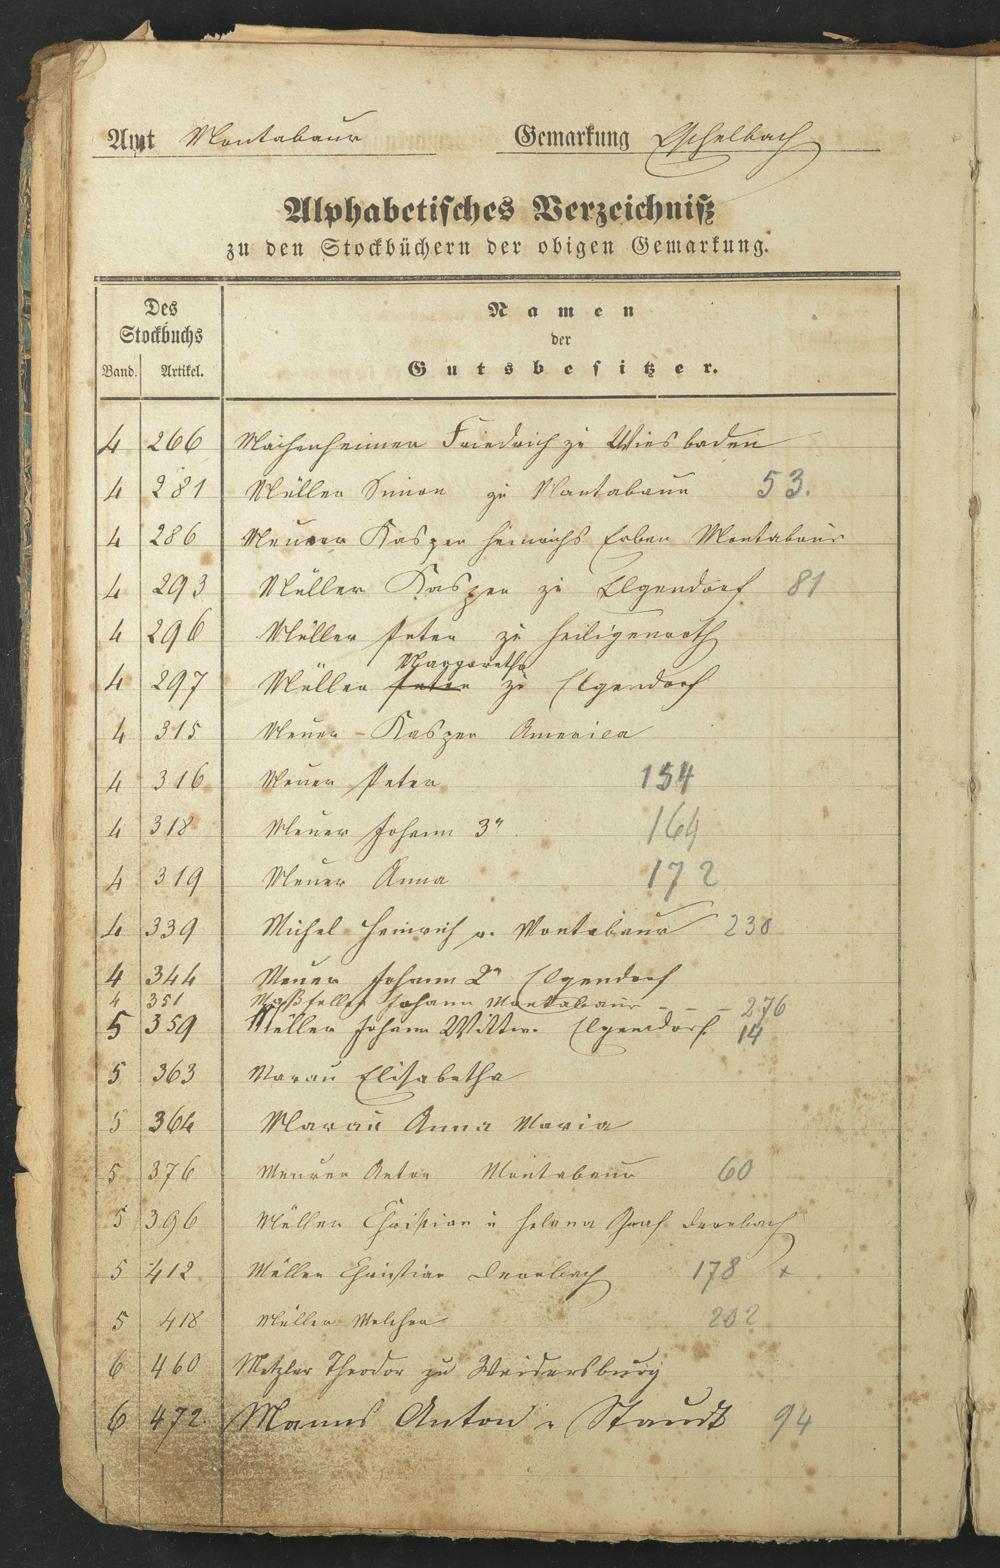 Amt Montabaur Gemarkung Eschelbach
Alphabetisches Verzeichniß
zu den Stockbüchern der obigen Gemarkung.
Des
Stockbuchs
Band. Artikel.
Namen
der
Gutsbesitzer.
4 266 Machenheimer Friedrich zu Wiesbaden
4 281 Müller Simon zu Montabaur 53.
4 286 Meurer Kasper Heinrichs Erben Montabaur
4 293 Müller Kasper zu Elgendorf 81
4 296 Müller Peter zu Heiligenroth
Margaretha
4 297 Müller Peter zu Elgendorf
4 315 Meuer Kasper America
4 316 Meuer Peter 154
4 318 Meuer Johann 3r 164
4 319 Meuer Anna 172
4 339 Michel Heinrich v. Montabaur 230
4 344 Meuer Johann 2r Elgendorf
4 351 Johann Montabaur - - - 276
5 359 Müller Johann Wittwe Elgendorf 14
5 363 Marau Elisabetha
5 364 Marau Anna Maria
5 376 Meurer Anton Montabaur 60
5 396 Müller Christian u Helena Graf Dernbach
5 412 Müller Christian Dernbach 178 x
5 418 Müller Melchor 202
6 460 Metzler Theodor zu Weidersburg
6 472 Manns Anton v Staudt 94